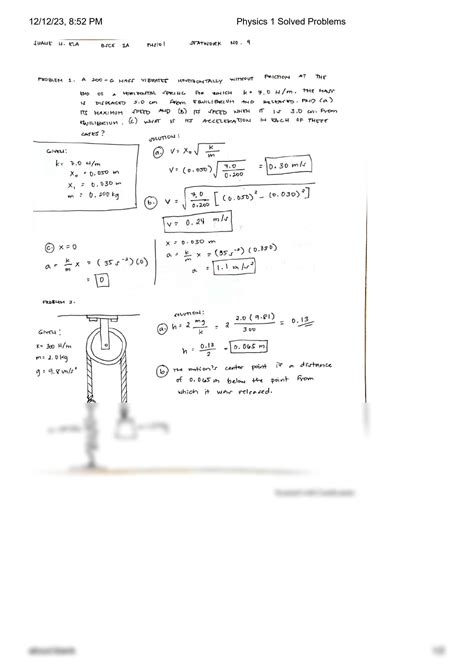 12/12/23, 8:52 PM Physics 1 Solved Problems
BSCE 2A PHYS01 SEATWORK NO. 9
PROBLEM 1. A 200-G MASS VIBRATES HORIZONTALLY WITHOUT FRICTION AT THE
END OF A HORIZONTAL SPRING FOR WHICH K = 7.0 N/m. THE MASS
IS DISPLACED 5.0 cm FROM EQUILIBRIUM AND RELEASED. FIND (A)
ITS MAXIMUM SPEED AND (B) ITS SPEED WHEN IT IS 3.0 cm FROM
EQUILIBRIUM. (C) WHAT IS ITS ACCELERATION IN EACH OF THESE
CASES?
GIVEN:
k = 7.0 N/m
X₀ = 0.050 m
X₁ = 0.030 m
m = 0.200 kg
SOLUTION:
a. V = X₀ √(k/m)
V = (0.050) √(7.0/0.200) = 0.30 m/s
b. V = √(7.0/0.200 [(0.050)² - (0.030)²])
V = 0.24 m/s
c. X = 0
a = k/m x = (35 s⁻²)(0)
= 0
X = 0.030 m
a = k/m x = (35 s⁻²)(0.030)
a = 1.1 m/s²
PROBLEM 2.
GIVEN:
K = 300 N/m
m = 2.0 kg
g = 9.8 m/s²
SOLUTION:
a. h = 2 mg/k = 2 2.0 (9.81)/300 = 0.13
h = 0.13/2 = 0.065 m
b. The motion's center point is a distance
of 0.065 m below the point from
which it was released.